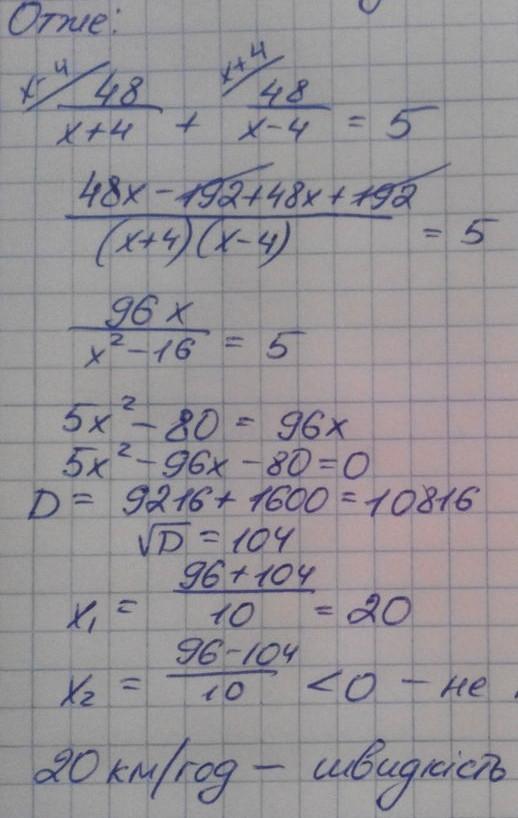 Отже:
x-4 48 / x+4 + x+4 48 / x-4 = 5
48x - 192 + 48x + 192 / (x+4)(x-4) = 5
96x / x² - 16 = 5
5x² - 80 = 96x
5x² - 96x - 80 = 0
D = 9216 + 1600 = 10816
√D = 104
x₁ = 96 + 104 / 10 = 20
x₂ = 96 - 104 / 10 < 0 - не
20 км/год - швидкість